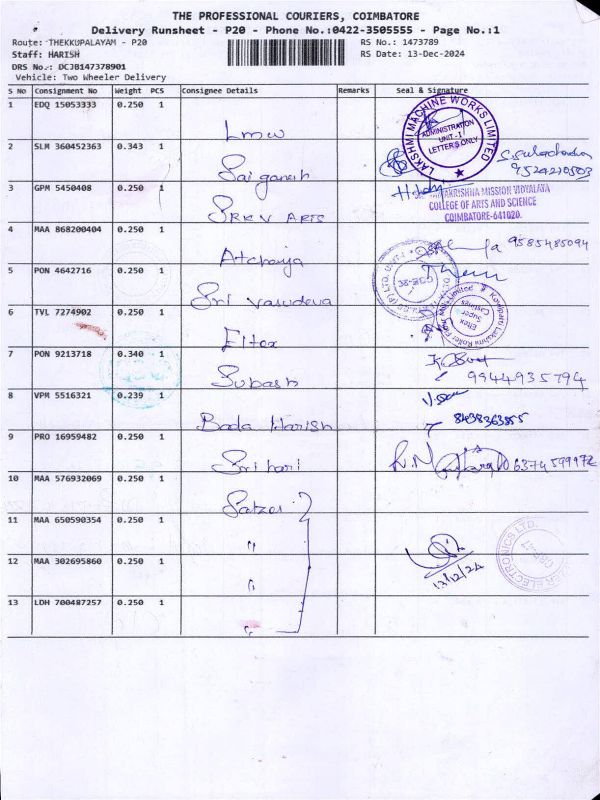 THE PROFESSIONAL COURIERS, COIMBATORE
Delivery Runsheet - P20 - Phone No.:0422-3505555 - Page No.:1
Route: THEKKUPALAYAM - P20 RS No.: 1473789
Staff: HARISH RS Date: 13-Dec-2024
DRS No.: DCJB147378901
Vehicle: Two Wheeler Delivery
S No Consignment No Weight PCS Consignee Details Remarks Seal & Signature
1 EDQ 15053333 0.250 1 Lmw
LAKSHMI MACHINE WORKS LIMITED
ADMINISTRATION
UNIT-1
LETTER'S ONLY
2 SLM 360452363 0.343 1 Sai ganesh
9524210503
3 GPM 5450408 0.250 1 SRKV ARTS
MISSION VIDYALAYA
COLLEGE OF ARTS AND SCIENCE
COIMBATORE-641020.
4 MAA 868200404 0.250 1 Atchaya 9585485094
5 PON 4642716 0.250 1 Sri Vasudeva
6 TVL 7274902 0.250 1 Eltex
Eltex
Super
7 PON 9213718 0.340 1 Subash
9944935794
8 VPM 5516321 0.239 1 Bada Harish
8438363855
9 PRO 16959482 0.250 1 Srihari
6374599972
10 MAA 576932069 0.250 1
11 MAA 650590354 0.250 1 "
12 MAA 302695860 0.250 1 "
13/12/24
ELECTRONICS LTD.
13 LDH 700487257 0.250 1 "